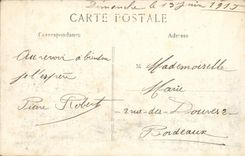 Dimanche le 13 juin 1915
CARTE POSTALE
Correspondance
Adresse
Au revoir à
j'espère
Pierre Robert
Mademoiselle
Marie
rue des Douves 2
Bordeaux